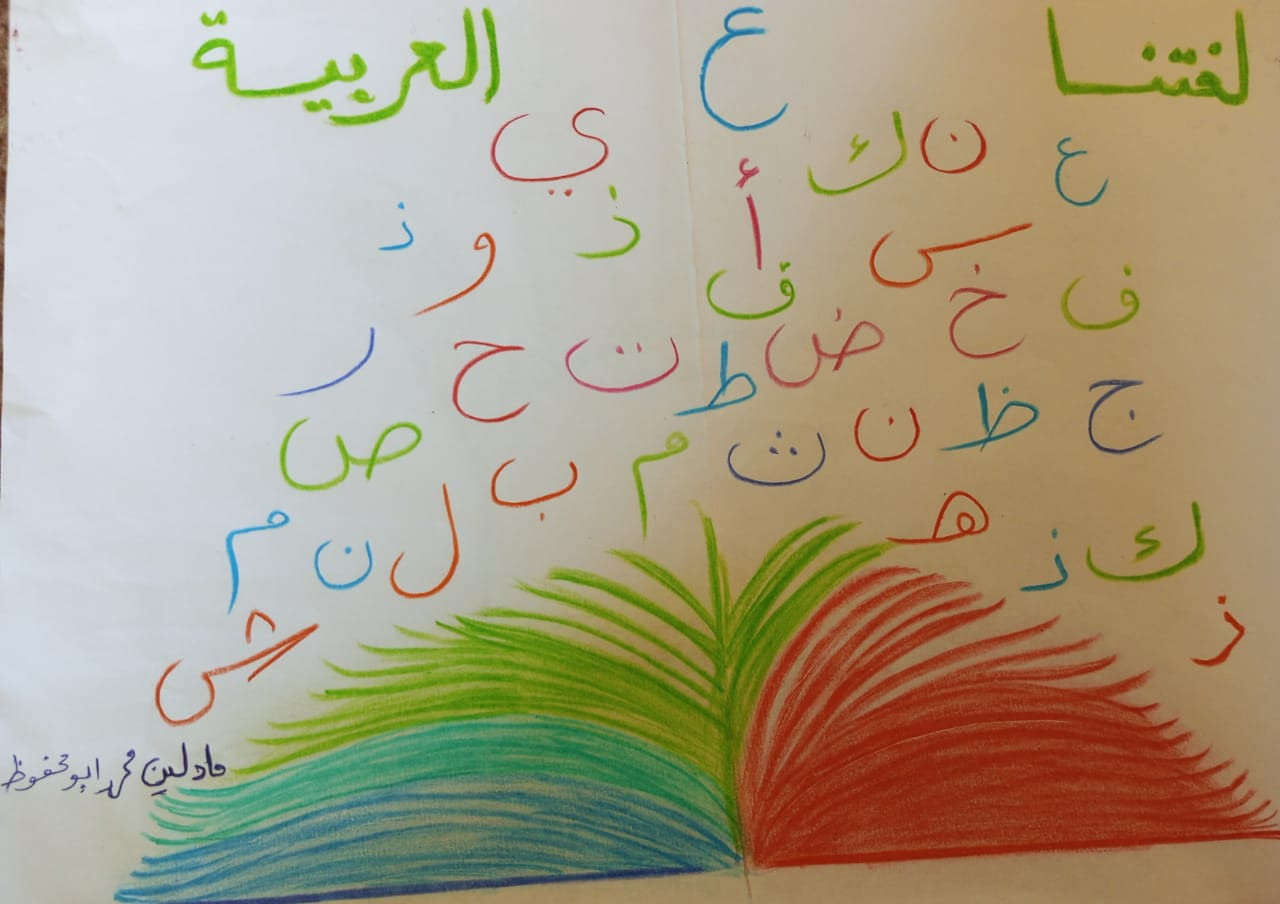 لغتنا ع العربية
ع ن ك ي
س أ ذ و ذ
ف خ ق
ض ط ت ح ر
ج ظ ن ث م ب ص
ك ذ هـ ل ن م
ذ ش
مادلين محمد ابو محفوظ